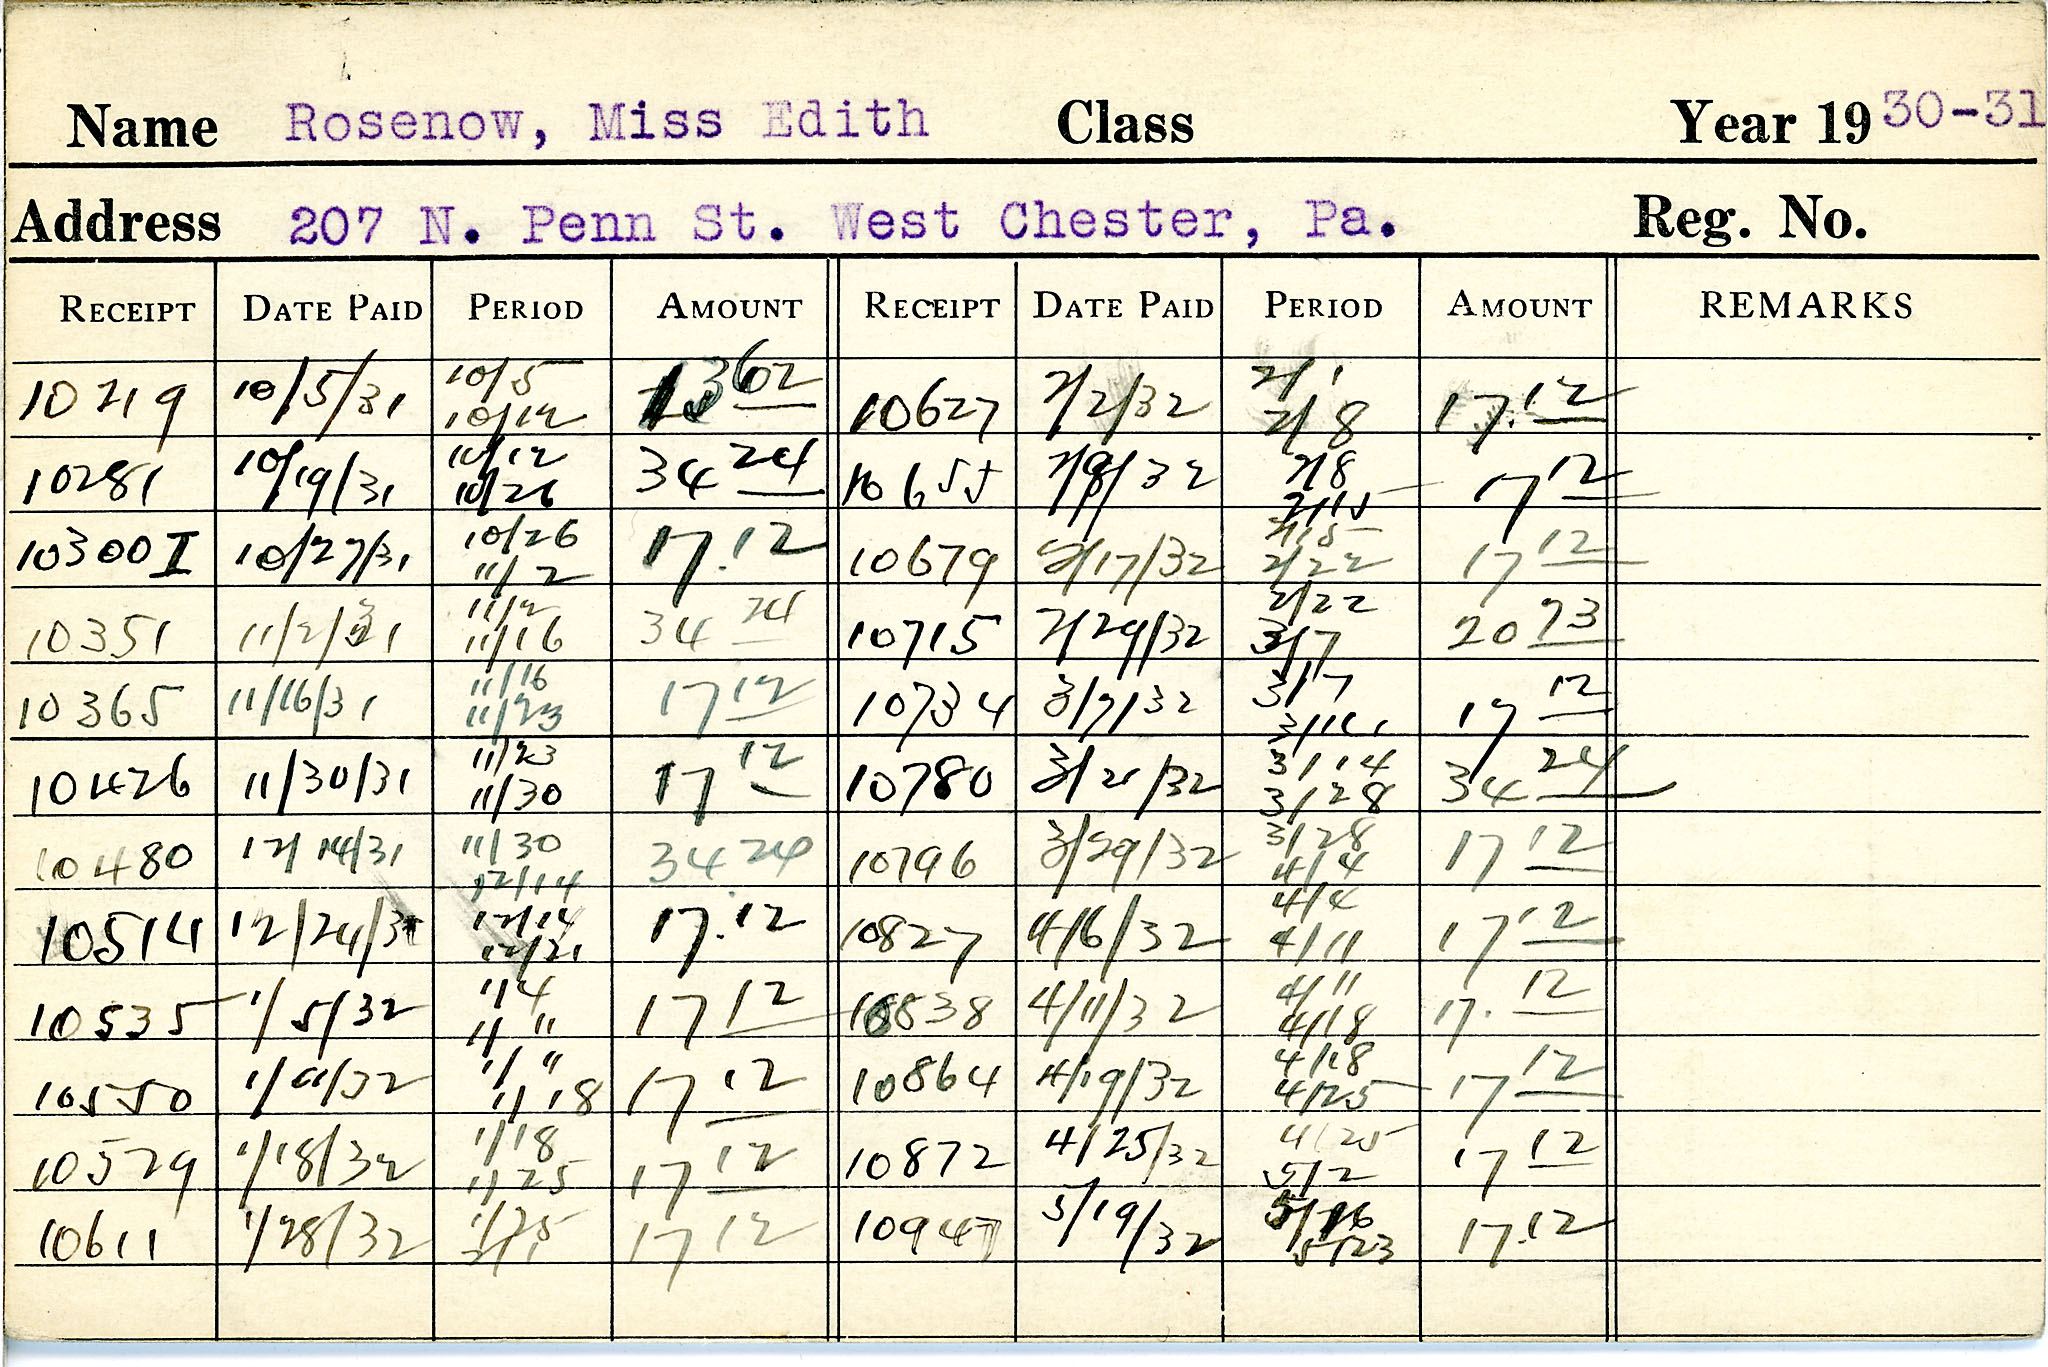 Name Rosenow, Miss Edith Class Year 1930-31
Address 207 N. Penn St. West Chester, Pa. Reg. No.
RECEIPT DATE PAID PERIOD AMOUNT RECEIPT DATE PAID PERIOD AMOUNT REMARKS
10219 10/5/31 10/5 10/12 13 02 10627 2/2/32 2/1 2/8 17.12
10281 10/19/31 10/12 10/26 34 24 10655 2/8/32 2/8 2/15 17 12
10300 I 10/27/31 10/26 11/2 17.12 10679 2/17/32 2/15 2/22 17 12
10351 11/2/31 11/2 11/16 34 24 10715 2/29/32 2/22 3/7 20 73
10365 11/16/31 11/16 11/23 17 12 10734 3/7/32 3/7 17 12
10426 11/30/31 11/23 11/30 17 12 10780 3/21/32 3/14 3/28 34 24
10480 12/14/31 11/30 12/14 34 24 10796 3/29/32 3/28 4/4 17 12
10514 12/24/31 12/14 12/21 17.12 10827 4/6/32 4/4 4/11 17 12
10535 1/5/32 1/4 1/11 17 12 10838 4/11/32 4/11 4/18 17.12
10550 1/11/32 1/11 1/18 17 12 10864 4/19/32 4/18 4/25 17 12
10579 1/18/32 1/18 1/25 17 12 10872 4/25/32 4/25 5/2 17 12
10611 1/28/32 1/25 2/1 17 12 10947 5/19/32 5/16 5/23 17.12